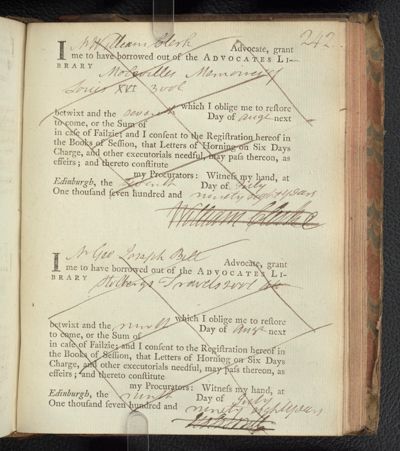 242
I Mr William Clerk Advocate, grant
me to have borrowed out of the ADVOCATES LI-
BRARY Molevilles Memoires of
Louis XVI 3 vol
which I oblige me to reſtore
betwixt and the seventh Day of augt next
to come, or the Sum of
in caſe of Failzie; and I conſent to the Regiſtration hereof in
the Books of Seſſion, that Letters of Horning on Six Days
Charge, and other executorials needful, may paſs thereon, as
effeirs; and thereto conſtitute
my Procurators: Witneſs my hand, at
Edinburgh, the seventh Day of July
One thouſand ſeven hundred and ninety eight years
William Clerk
I Mr Geo Joseph Bell Advocate, grant
me to have borrowed out of the ADVOCATES LI-
BRARY Travels 2 vol
which I oblige me to reſtore
betwixt and the ninth Day of augt next
to come, or the Sum of
in caſe of Failzie; and I conſent to the Regiſtration hereof in
the Books of Seſſion, that Letters of Horning on Six Days
Charge, and other executorials needful, may paſs thereon, as
effeirs; and thereto conſtitute
my Procurators: Witneſs my hand, at
Edinburgh, the ninth Day of July
One thouſand ſeven hundred and ninety eight years